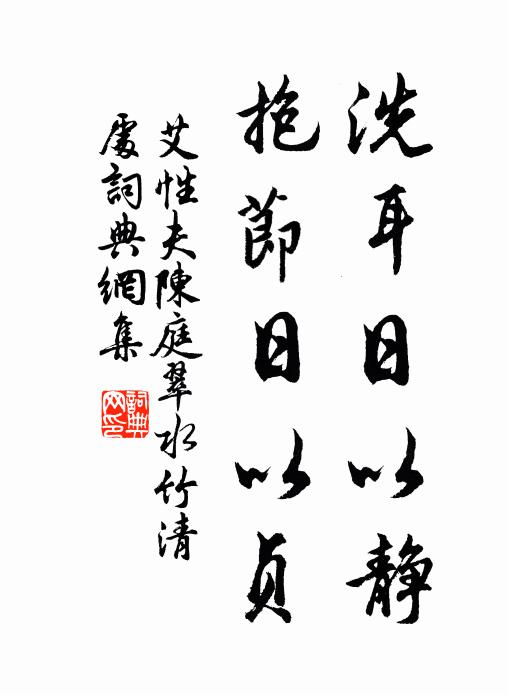 洗耳日以静
抱節日以貞
艾性夫陳庭翠水竹清
處詞典網集
詞典
网印